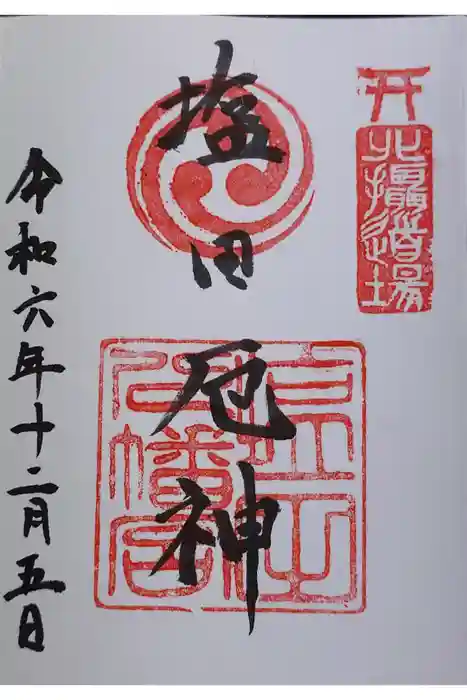 北攝道場
塩田
厄神
八幡宮
令和六年十二月五日